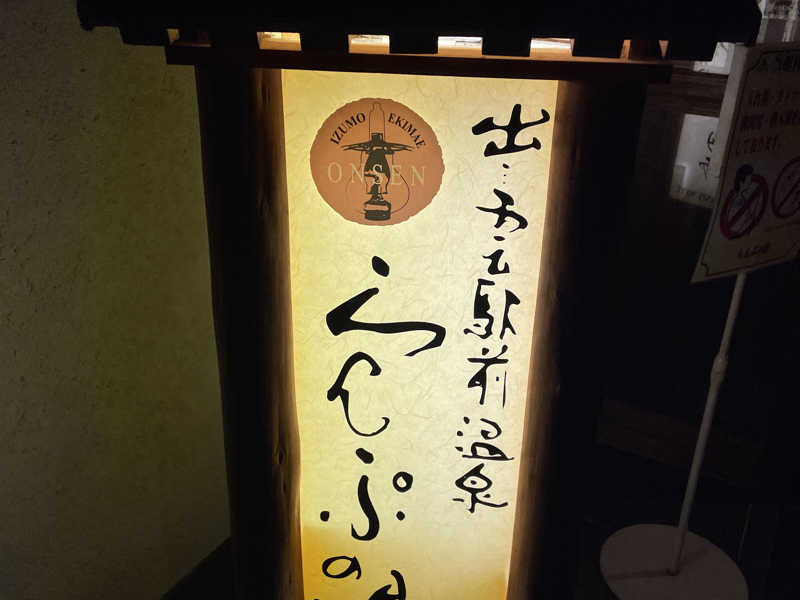 IZUMO EKIMAE
ONSEN
出雲駅前温泉
らんぷの
しております。